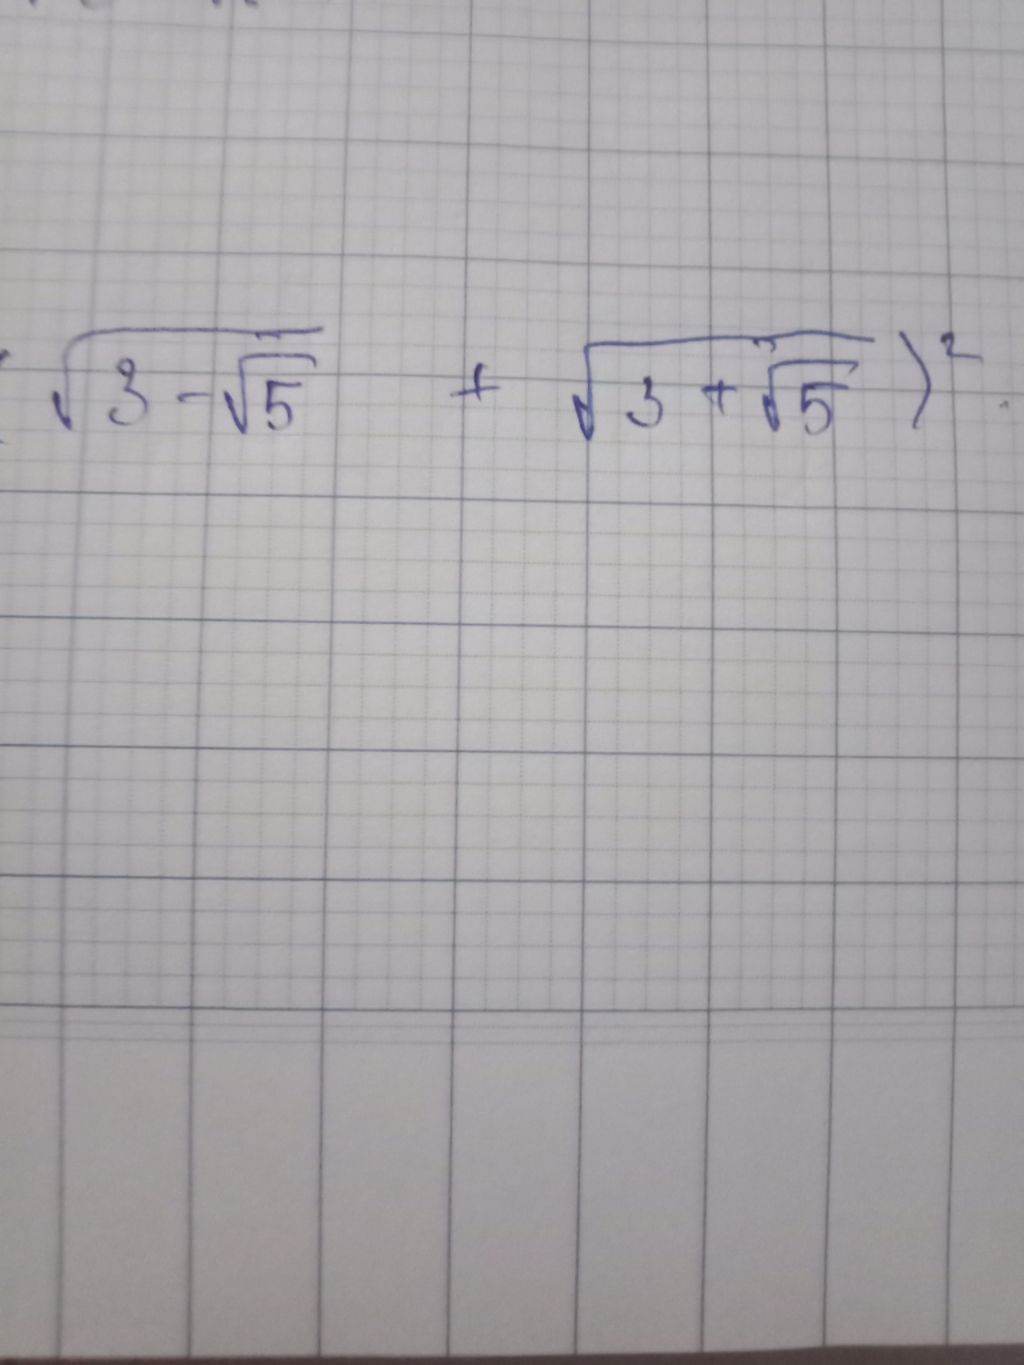 ( √(3 - √5) + √(3 + √5) )²